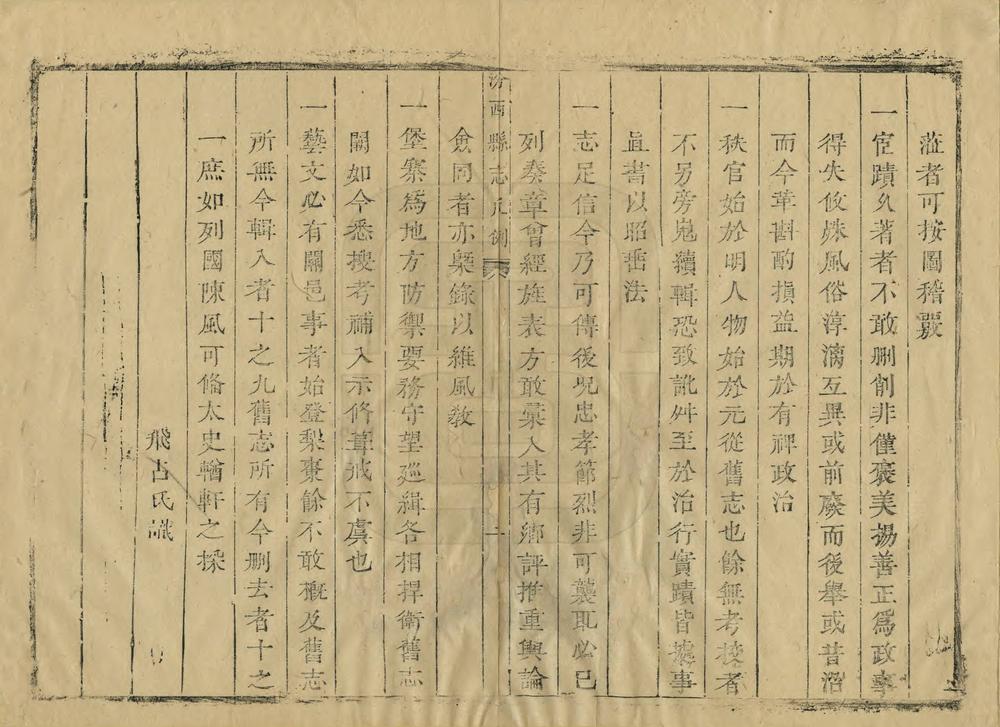 蒞者可按圖稽覈
一宦蹟久著者不敢刪削非僅褒美揚善正爲政事
得失攸殊風俗淳漓互異或前廢而後舉或昔沿
而今革斟酌損益期於有裨政治
一秩官始於明人物始於元從舊志也餘無考按者
不另旁嵬續輯恐致訛舛至於治行實蹟皆據事
直書以昭垂法
一志足信今乃可傳後况忠孝節烈非可襲取必已
列奏章曾經旌表方敢彙入其有鄉評推重輿論
僉同者亦槩錄以維風教
汾西縣志 凡例 二
一堡寨爲地方防禦要務守望巡緝各相捍衛舊志
闕如今悉搜考補入示脩葺戒不虞也
一藝文必有關邑事者始登梨棗餘不敢槪及舊志
所無今輯入者十之九舊志所有今刪去者十之
一庶如列國陳風可脩太史輶軒之採
飛占氏識